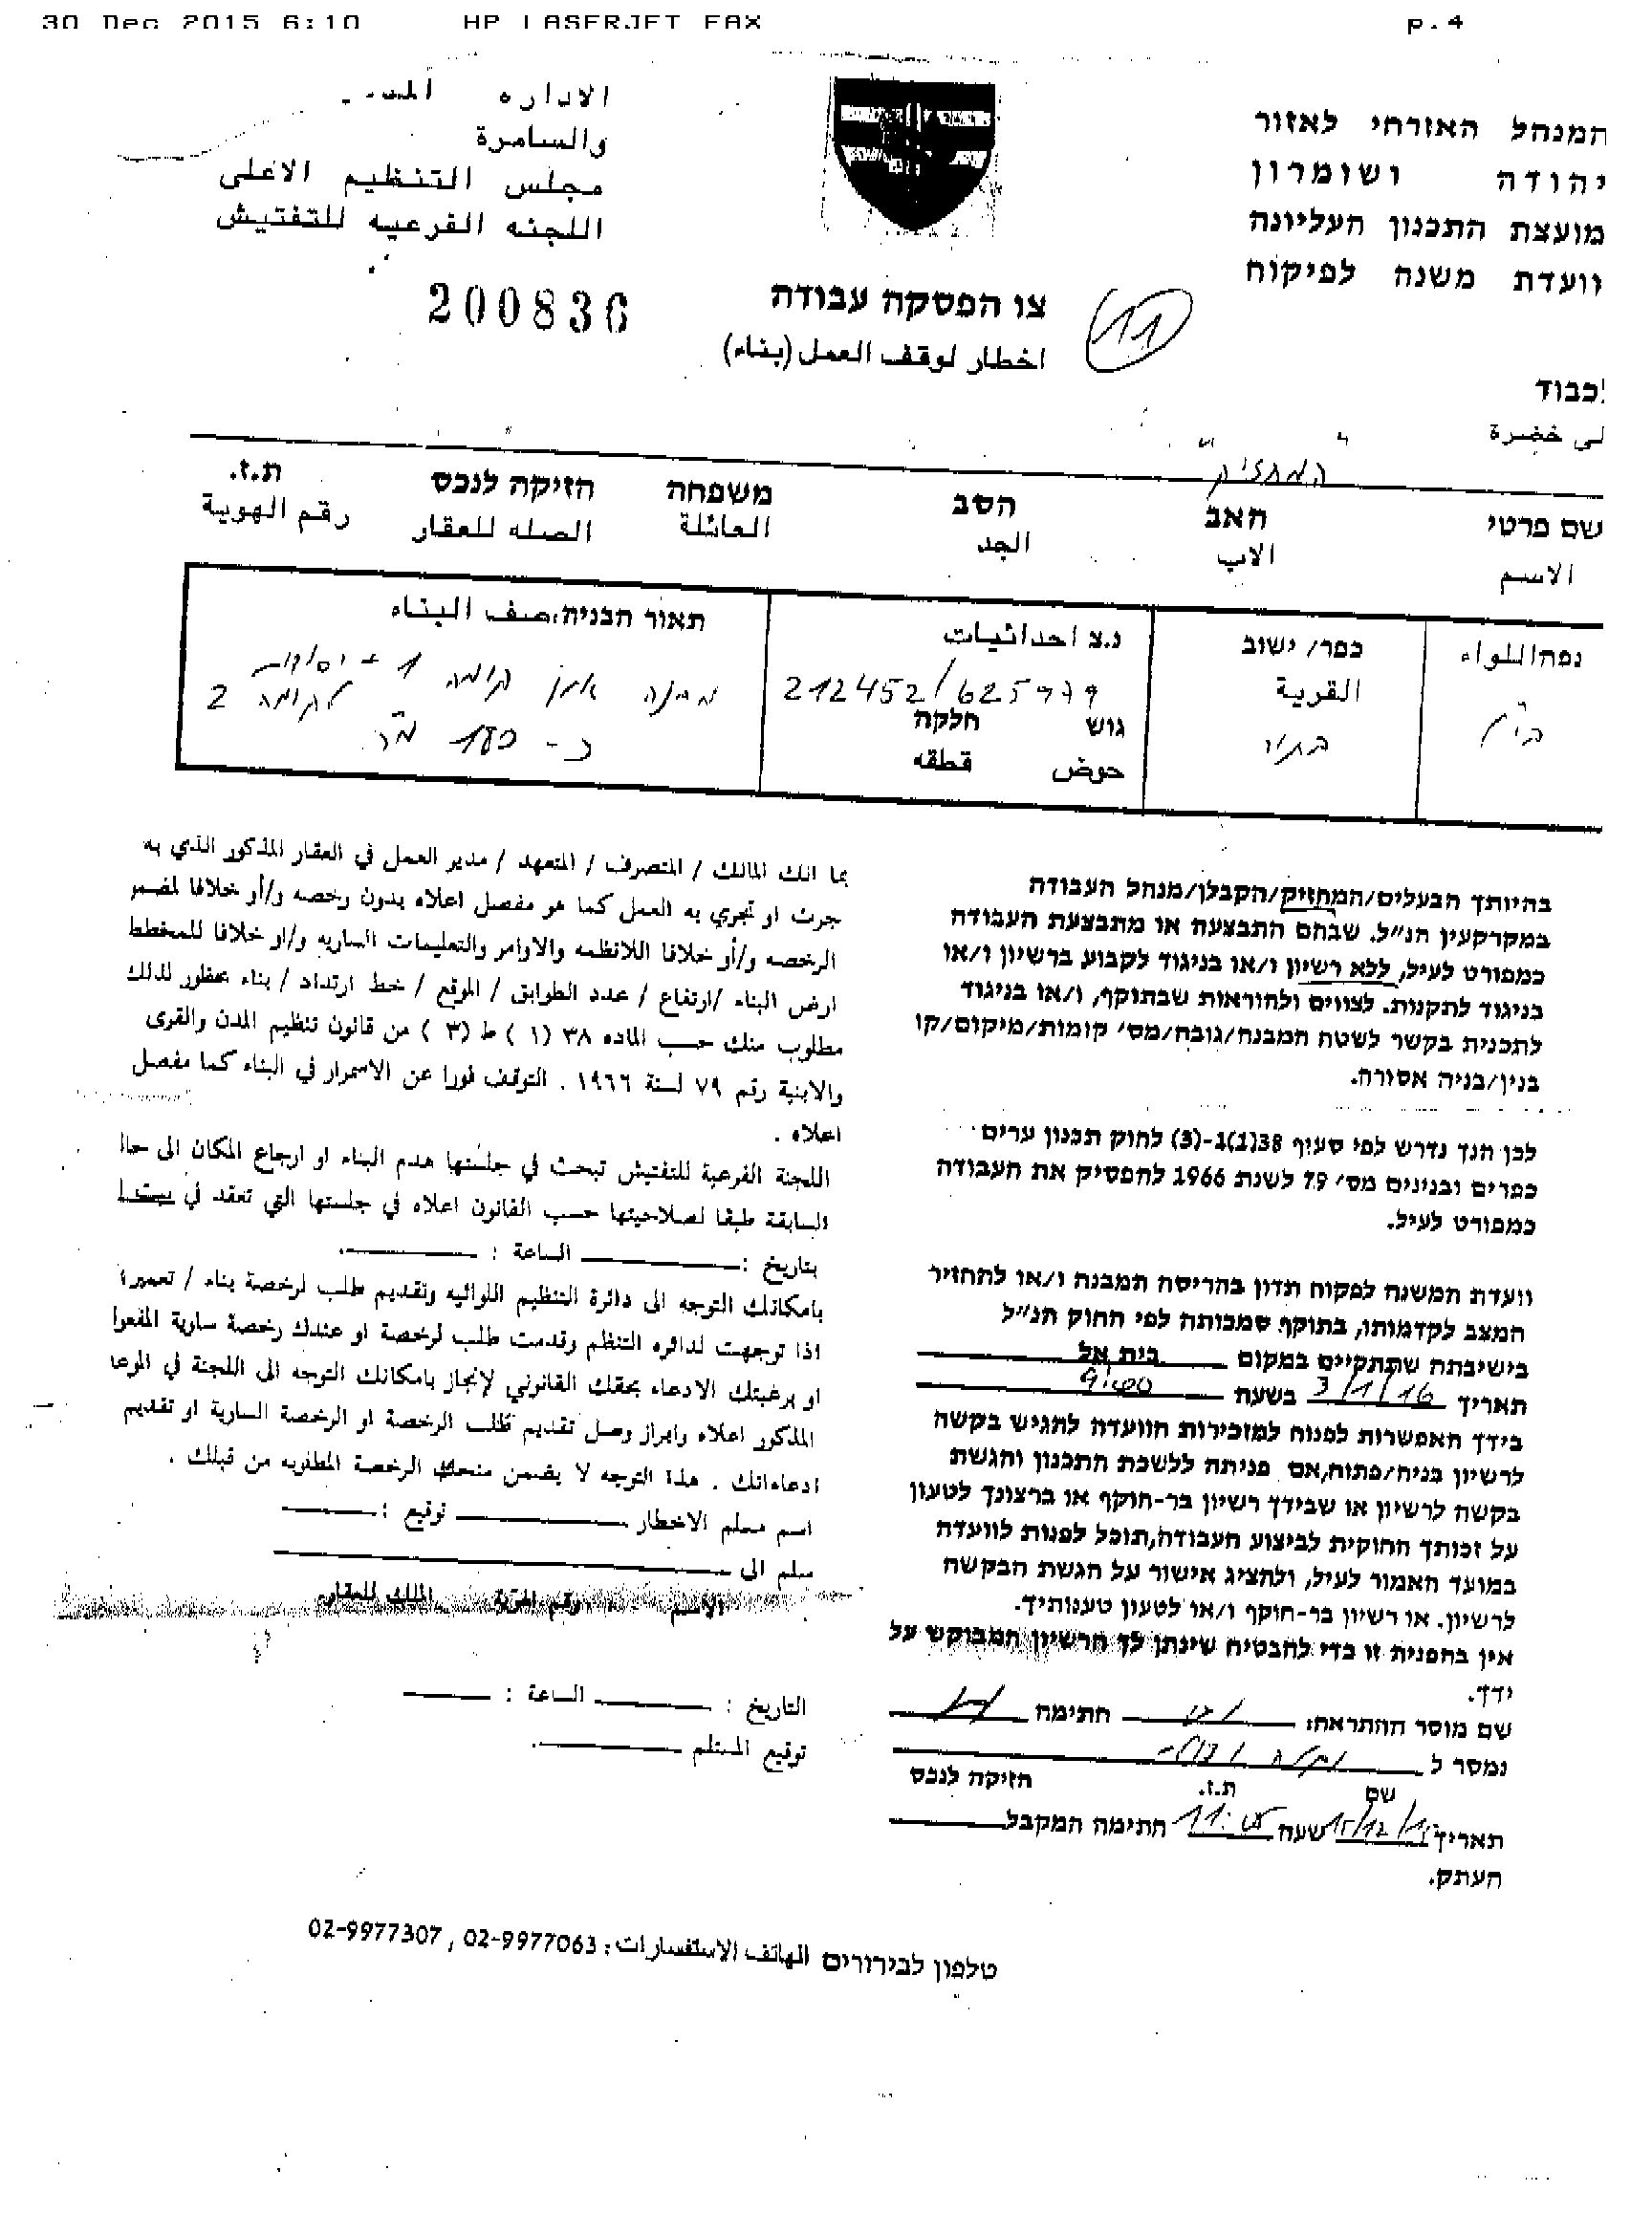 30 Dec 2015 6:10 HP LASERJET FAX p.4
המנהל האזרחי לאזור
יהודה ושומרון
מועצת התכנון העליונה
וועדת משנה לפיקוח
الاداره
والسامرة
مجلس التنظيم الاعلى
اللجنه الفرعيه للتفتيش
200836
צו הפסקה עבודה
11
اخطار لوقف العمل (بناء)
לכבוד
لى خضرة
המחזיק
שם פרטי האב הסב משפחה הזיקה לנכס ת.ז.
الاسم الاب الجد العائلة الصله للعقار رقم الهوية
נפה اللواء
כפר/ ישוב
القرية
נ.צ احداثيات
212452/625979
גוש חלקה
حوض قطقه
תאור הבניה: صف البناء
מבנה אבן קומה 1 + יסודות
לקומה 2
כ- 180 מ"ר
בהיותך הבעלים/המחזיק/הקבלן/מנהל העבודה
במקרקעין הנ"ל. שבהם התבצעה או מתבצעת העבודה
כמפורט לעיל, ללא רשיון ו/או בניגוד לקבוע ברשיון ו/או
בניגוד לתקנות. לצווים ולהוראות שבתוקף, ו/או בניגוד
לתכנית בקשר לשטח המבנה/גובה/מס' קומות/מיקום/קו
בנין/בניה אסורה.
לכן הנך נדרש לפי סעיף 38(1)ג-(3) לחוק תכנון ערים
כפרים ובנינים מס' 79 לשנת 1966 להפסיק את העבודה
כמפורט לעיל.
וועדת המשנה לפקוח תדון בהריסה המבנה ו/או להחזיר
המצב לקדמותו, בתוקף סמכותה לפי החוק הנ"ל
בישיבתה שתתקיים במקום בית אל
תאריך 3/1/16 בשעה 9:00
בידך האפשרות לפנות למזכירות הוועדה להגיש בקשה
לרשיון בניה/פתוח,אם פניתה ללשכת התכנון והגשת
בקשה לרשיון או שבידך רשיון בר-תוקף או ברצונך לטעון
על זכותך החוקית לביצוע העבודה,תוכל לפנות לוועדה
במועד האמור לעיל, ולהציג אישור על הגשת הבקשה
לרשיון. או רשיון בר-תוקף ו/או לטעון טענותיך.
אין בהפנית זו כדי להבטיח שינתן לך הרשיון המבוקש על
ידך.
שם מוסר ההתראה: חתימה
נמסר ל
שם ת.ז. הזיקה לנכס
תאריך 15/12/15 שעה 11:05 חתימה המקבל
העתק.
بما انك المالك / المتصرف / المتعهد / مدير العمل في العقار المذكور الذي به
جرت او تجري به العمل كما هو مفصل اعلاه بدون رخصه و/أو خلافا لمضمو
الرخصه و/أو خلافا اللانظمه والاوامر والتعليمات الساريه و/او خلافا للمخطط
ارض البناء /ارتفاع / عدد الطوابق / الموقع / خط ارتداد / بناء محظور لذلك
مطلوب منك حسب الماده ٣٨ (١) ط (٣) من قانون تنظيم المدن والقرى
والابنية رقم ٧٩ لسنة ١٩٦٦ . التوقف فورا عن الاسمرار في البناء كما مفصل
اعلاه .
اللجنة الفرعية للتفتيش تبحث في جلستها هدم البناء او ارجاع المكان الى حال
السابقة طبقا لصلاحيتها حسب القانون اعلاه في جلستها التي تعقد في
بتاريخ : الساعة :
بامكانك التوجه الى دائرة التنظيم اللوائيه وتقديم طلب لرخصة بناء / تعمير؛
اذا توجهت لدائره التنظم وقدمت طلب لرخصة او عندك رخصة سارية المفعوا
او برغبتك الادعاء بحقك القانوني لإنجاز بامكانك التوجه الى اللجنة في الموعا
المذكور اعلاه وابراز وصل تقديم طلب الرخصة او الرخصة السارية او تقديم
ادعاءاتك . هذا التوجه لا يضمن منحك الرخصة المطلوبه من قبلك .
اسم مسلم الاخطار توقيع :
سلم الى
الاسم رقم الهوية الملك للعقار
التاريخ : الساعة :
توقيع المستلم
טלפון לבירורים الهاتف الاستفسارات: 02-9977063 , 02-9977307